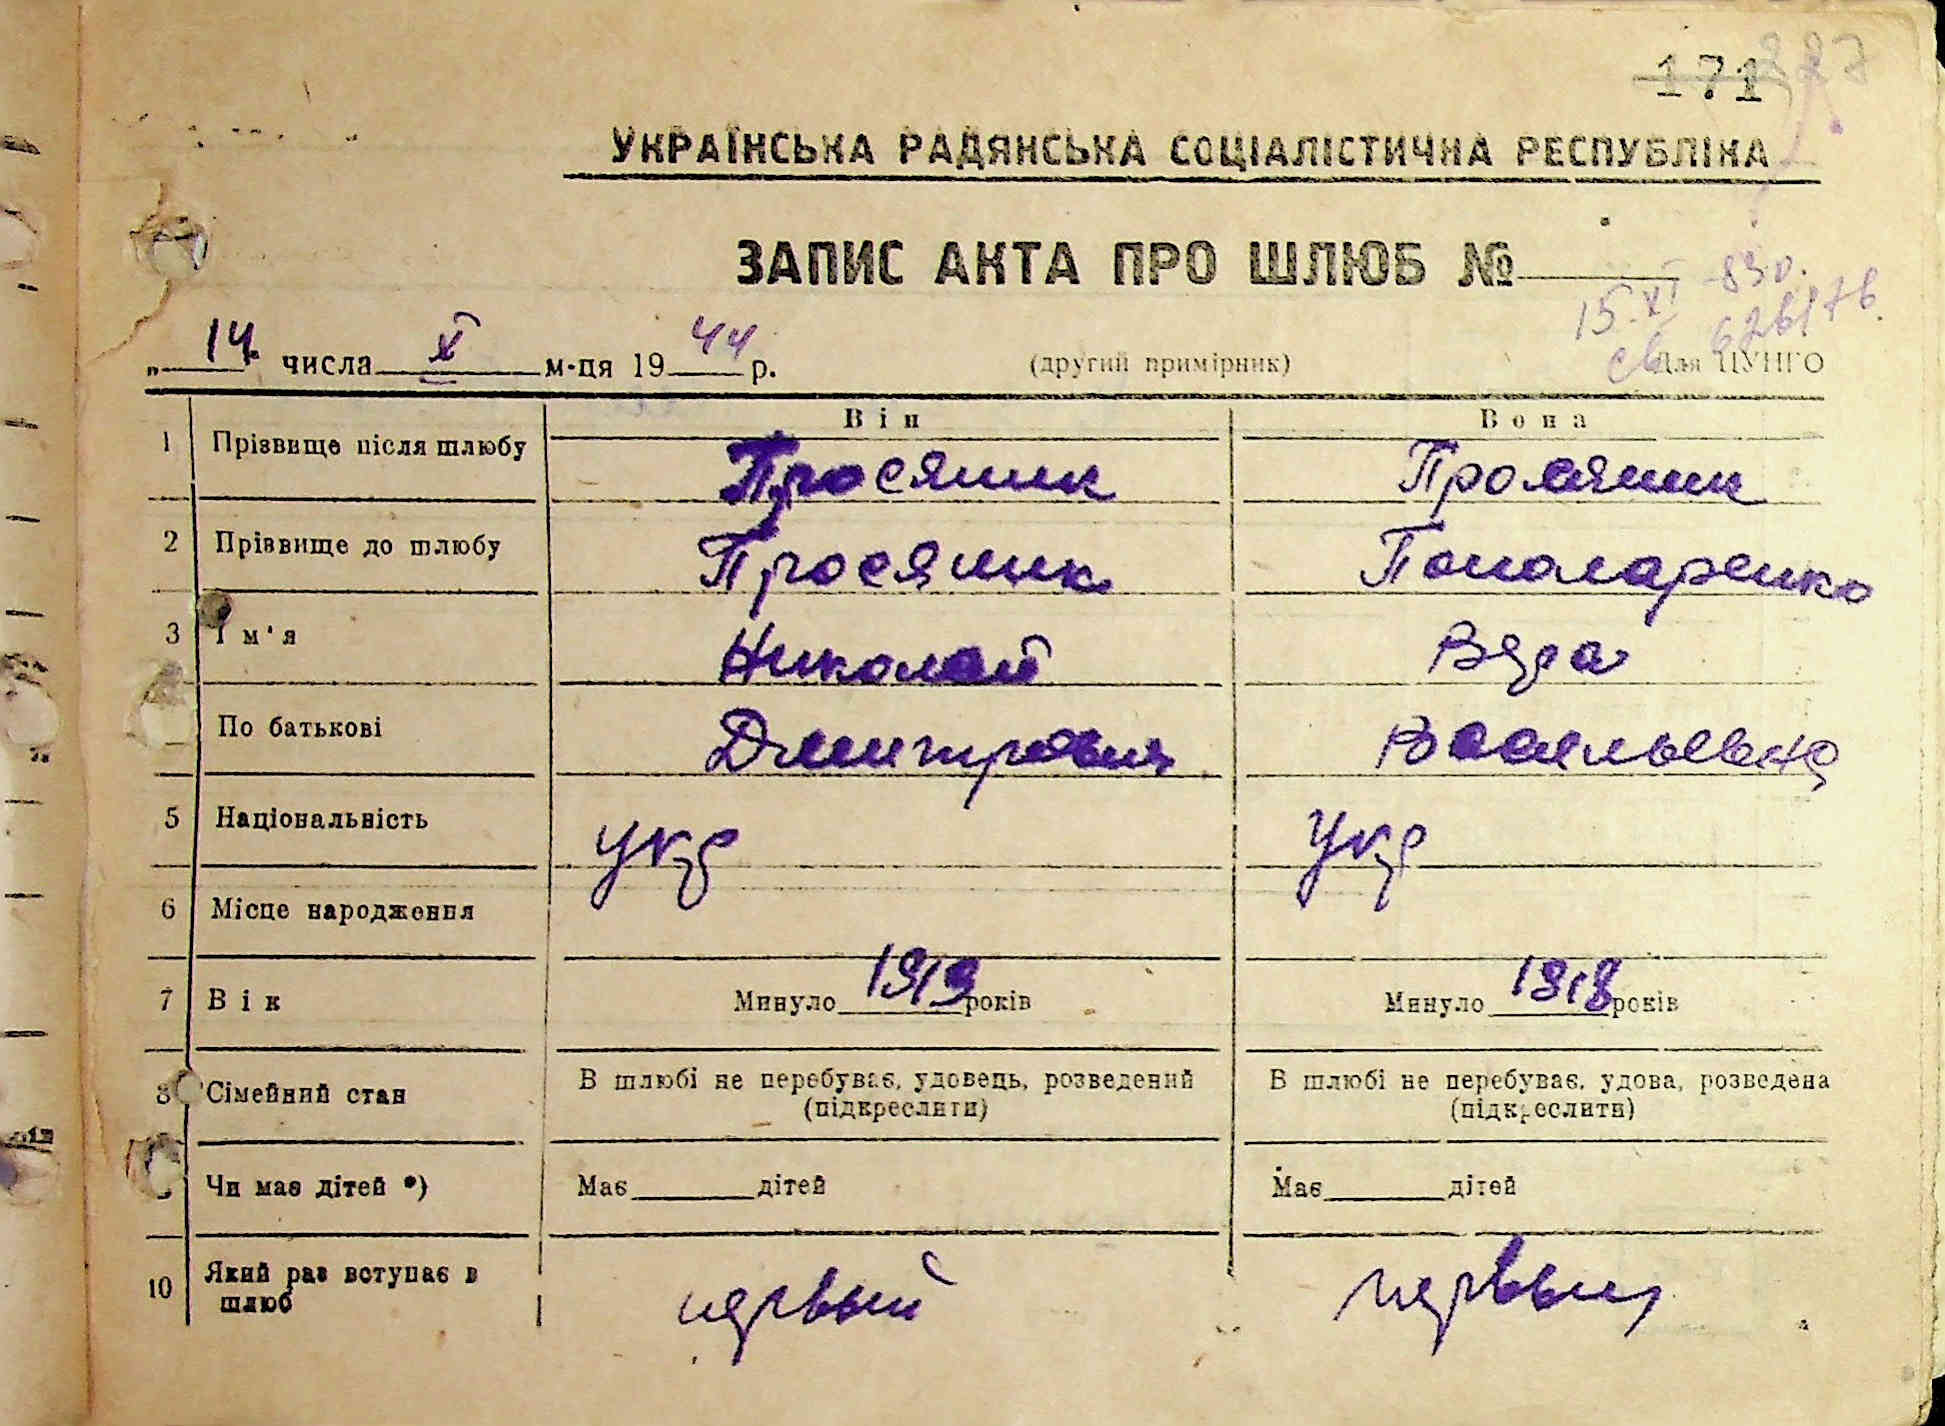 171 227
УКРАЇНСЬКА РАДЯНСЬКА СОЦІАЛІСТИЧНА РЕСПУБЛІКА
ЗАПИС АКТА ПРО ШЛЮБ №
15.XI -83р.
„ 14 числа X м-ця 19 44 р. (другий примірник) Для ЦУНГО
Він Вона
1 Прізвище після шлюбу Просяник Просяник
2 Прізвище до шлюбу Просяник Пономаренко
3 Ім'я Николай Вера
По батькові Дмитрович Васильевна
5 Національність укр Укр
6 Місце народження
7 Вік Минуло 1919 років Минуло 1918 років
8 Сімейний стан В шлюбі не перебуває, удовець, розведений (підкреслити) В шлюбі не перебуває, удова, розведена (підкреслити)
Чи має дітей *) Має дітей Має дітей
10 Який раз вступає в шлюб первый первый